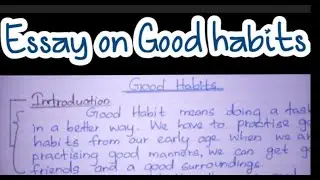 Essay on Good habits
Good Habits
Introduction
Good Habit means doing a task
in a better way. We have to practise
habits from our early age. When we
practising good manners, we can get
friends and a good surroundings.